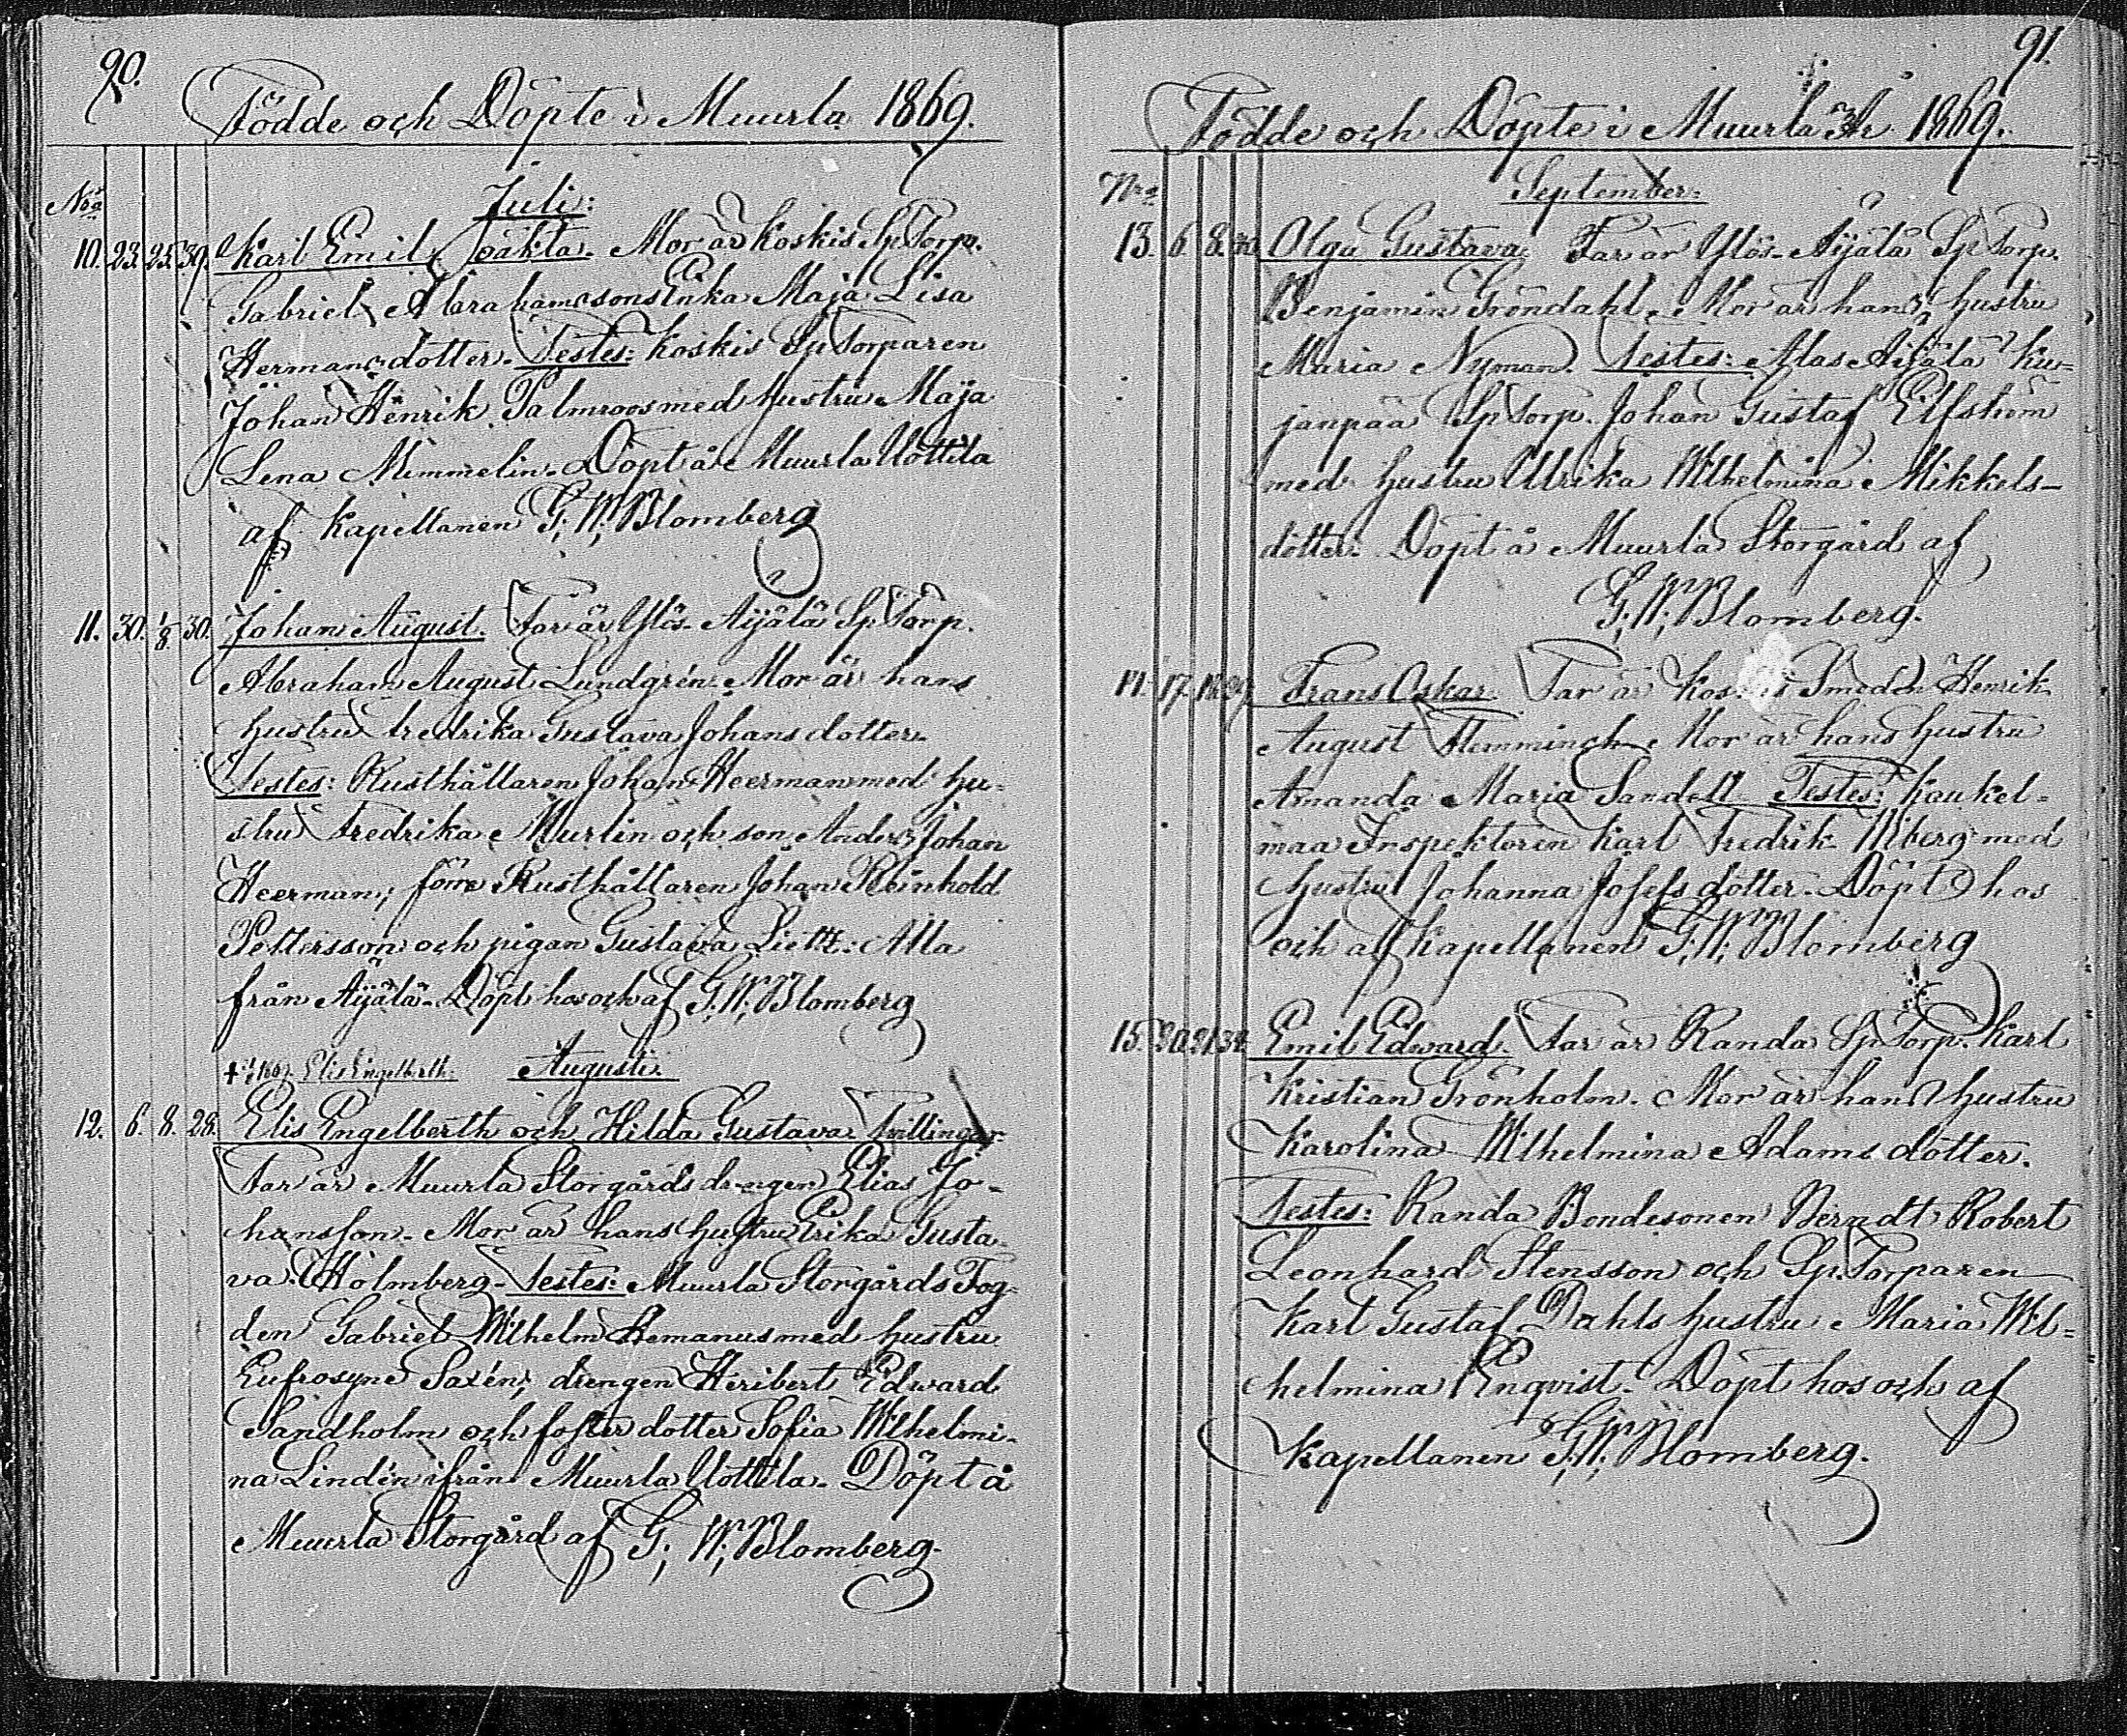 90.
Födde och Döpte i Muurla 1869.
Nro
Juli:
10. 23. 25. 39. Karl Emil, Oäkta. Mor är Koskis Sp. Torp.
Gabriel Abrahamssons Enka Maja Lisa
Hermansdotter. Testes: Koskis Sp Torparen
Johan Henrik Palmroos med hustru Maja
Lena Mimmelin. Döpt å Muurla Uottila
af Kapellanen G; W; Blomberg
11. 30. 1/8. 30. Johan August. Far är Ylös-Äijälä Sp Torp.
Abraham August Lundgrén. Mor är hans
hustru Fredrika Gustava Johansdotter.
Testes: Rusthållaren Johan Heerman med hu-
stru Fredrika Murlin och son Anders Johan
Heerman; förre Rusthållaren Johan Reinhold
Pettersson och pigan Gustava Liett: Alla
från Äijälä. Döpt hos och af G; W; Blomberg
Elis Engelberth. Augusti.
12. 6. 8. 28. Elis Engelberth och Hilda Gustava. Tvillingar.
Far är Muurla Storgårds drengen Elias Jo-
hansson. Mor är hans hustru Erika Gusta-
va Holmberg. Testes: Muurla Storgårds Fog-
den Gabriel Wilhelm Hemanus med hustru
Eufrosyne Saxén; drengen Heribert Edward
Sandholm och foster dotter Sofia Wilhelmi-
na Lindén ifrån Muurla Uottila. Döpt å
Muurla Storgård af G; W; Blomberg.
91.
Födde och Döpte i Muurla År 1869.
Nro
September:
13. 6. 8. 30. Olga Gustava. Far är Ylös-Äijälä Sp Torp.
Benjamin Gröndahl. Mor är hans hustru
Maria Nyman. Testes: Alas Äijälä Ku-
janpää Sp Torp. Johan Gustaf Elfström
med hustru Ulrika Wilhelmina Mikkels-
dotter. Döpt å Muurla Storgård af
G; W; Blomberg.
14. 17. 18. Frans Oskar. Far är Smeden Henrik
August Flemminch. Mor är hans hustru
Amanda Maria Sandell. Testes: Kaukel-
maa Inspektoren Karl Fredrik Wiberg med
hustru Johanna Josefsdotter. Döpt hos
och af Kapellanen G; W; Blomberg
15. 20. 21. 34. Emil Edward. Far är Randa Sp. Torp. Karl
Kristian Grönholm. Mor är hans hustru
Karolina Wilhelmina Adams dotter.
Testes: Randa Bondesonen Berndt Robert
Leonhard Stensson och Sp. Torparen
Karl Gustaf Dahls hustru Maria Wil-
helmina Enqvist. Döpt hos och af
Kapellanen G; W; Blomberg.